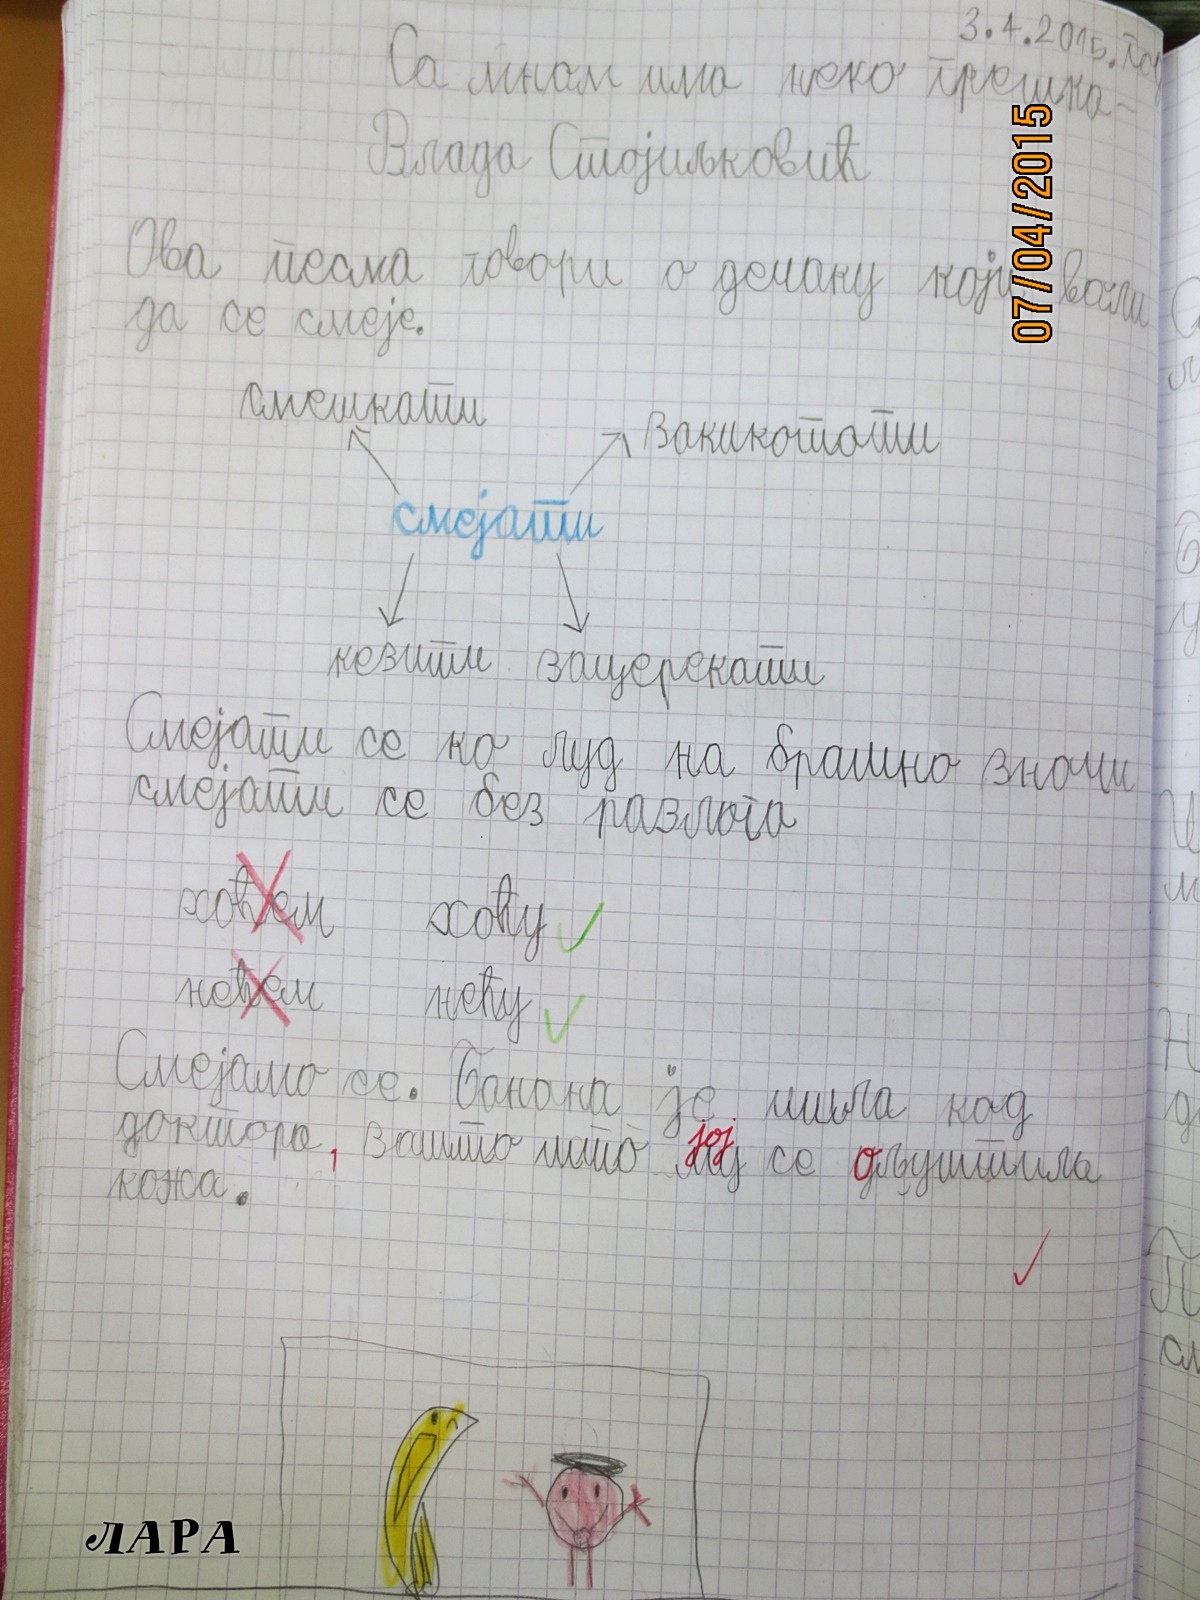 3.4.2015.
Са мнам има неко грешка-
Влада Стојиљковић
07/04/2015
Ова песма говори о дечаку који воли
да се смеје.
смешкати
закикотати
смејати
кезити зацерекати
Смејати се ко луд на брашно значи
смејати се без разлога
хоћем хоћу ✓
нећем нећу ✓
Смејамо се. Банана је ишла код
доктора, зашто што јој се ољуштила
кожа.
ЛАРА